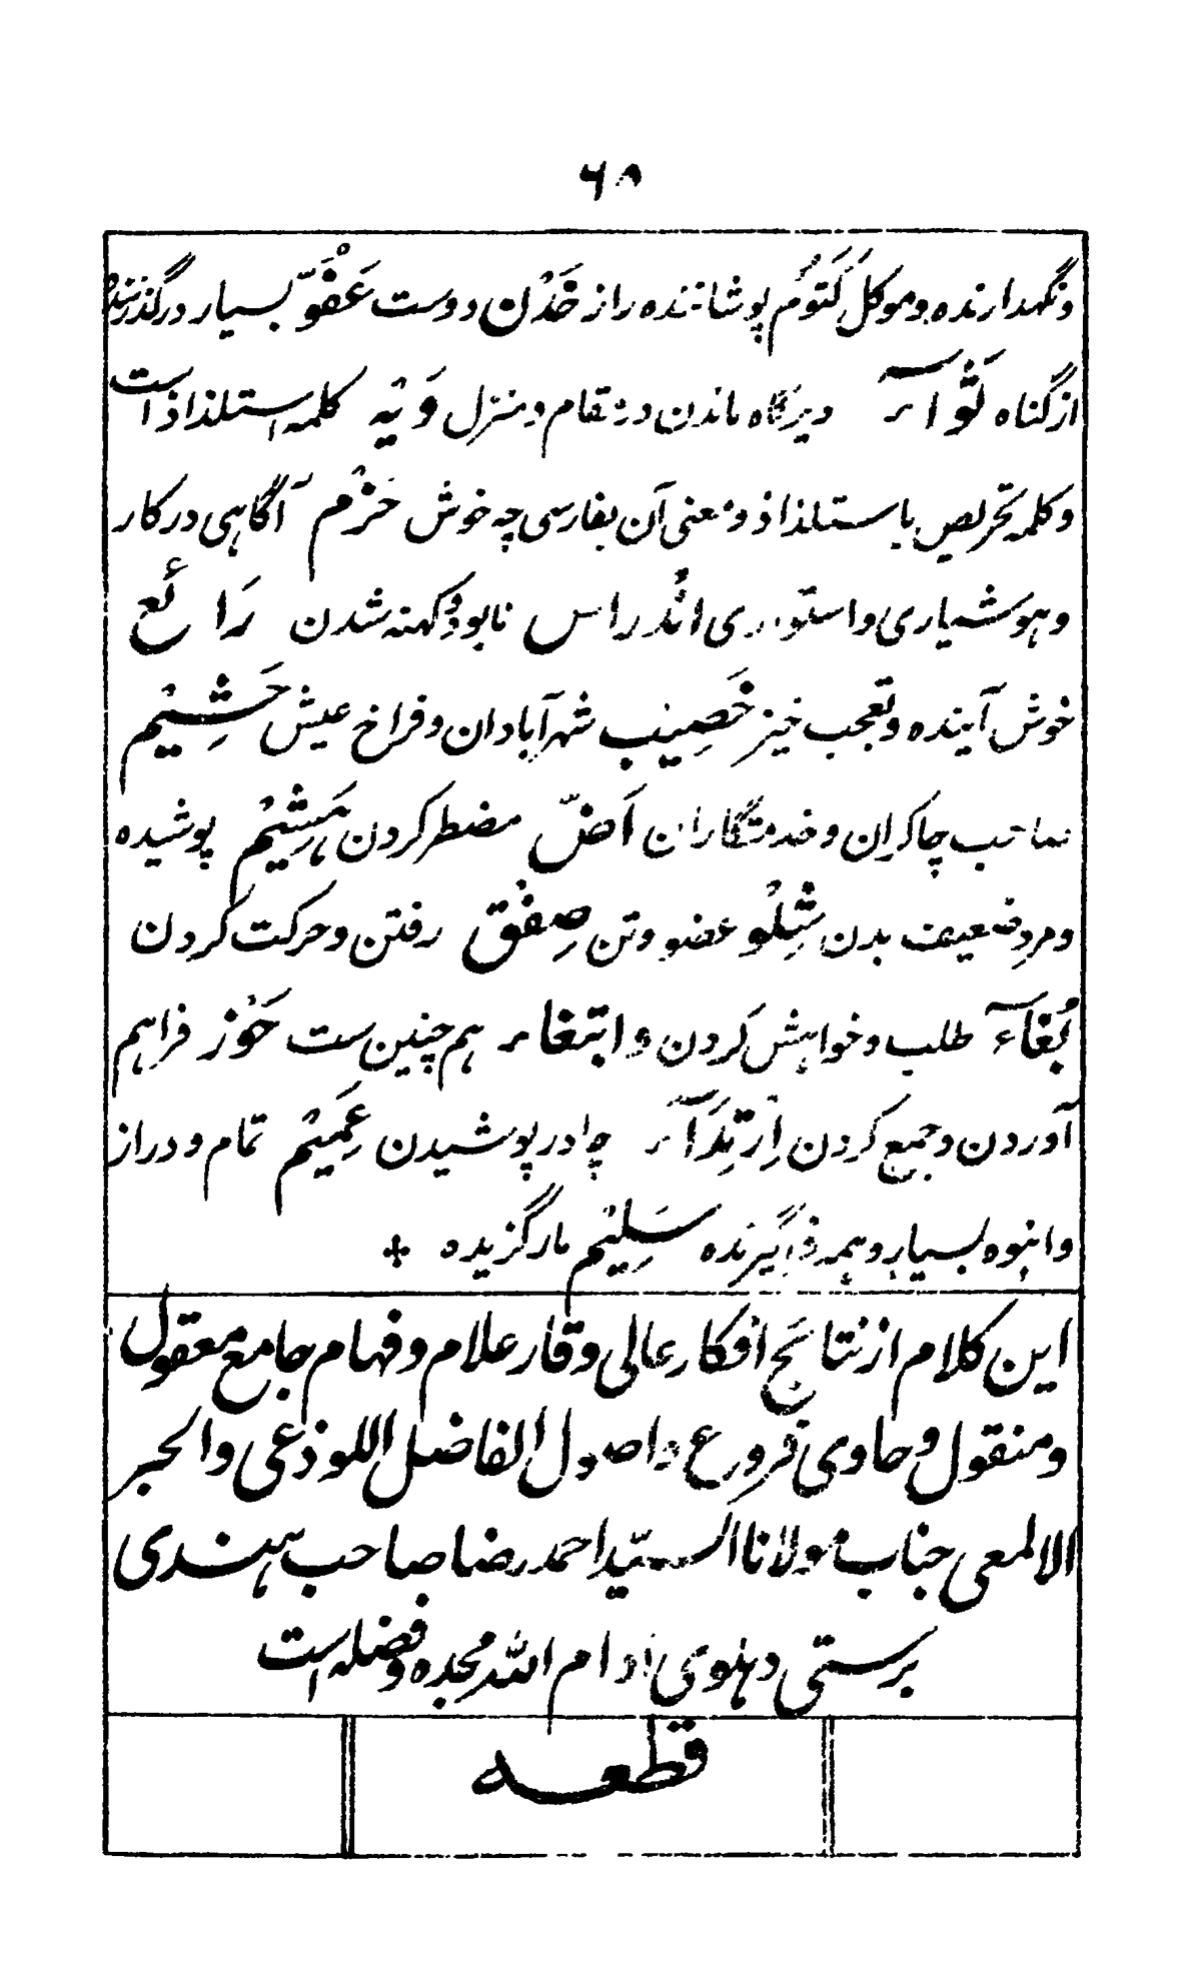 ۶۸
ونگهدارنده وموکل کَتُومُ پوشاننده راز خَدْن دوست عَفُوّ بسیار درگذرنده
ازگناه ثَوآء دیرگاه ماندن در مقام ومنزل وَیْه کلمه استلذاذ است
وکلمه تحریص باستلذاذ ومعنی آن بفارسی چه خوش حَزْم آگاهی درکار
وهوشیاری واستوری اِنْدراس نابود وکهنه شدن رَائع
خوش آینده وتعجب خیز خَصِیْب شهر آبادان وفراخ عیش حَشِیْم
صاحب چاکران وخدمتگاران اَضّ مضطرکردن هَشِیْم پوشیده
ومردِ ضعیف بدن شِلْو عضو وتن صِفْق رفتن وحرکت کردن
بُغَآء طلب وخواهش کردن وابتغاء هم چنین ست حَوْز فراهم
آوردن وجمع کردن اِرْتِدَآء چادر پوشیدن عَمِیْم تمام ودراز
وانبوه بسیار وهمه فراگیرنده سَلِیْم مارگزیده ✢
این کلام از نتائج افکار عالی وقار علام وفهام جامع معقول
ومنقول وحاوی فروع واصول الفاضل اللوذعی والحبر
الالمعی جناب مولانا السیّد احمد رضا صاحب هندی
برستی دهلوی ادام الله مجده وفضله است
قطعه